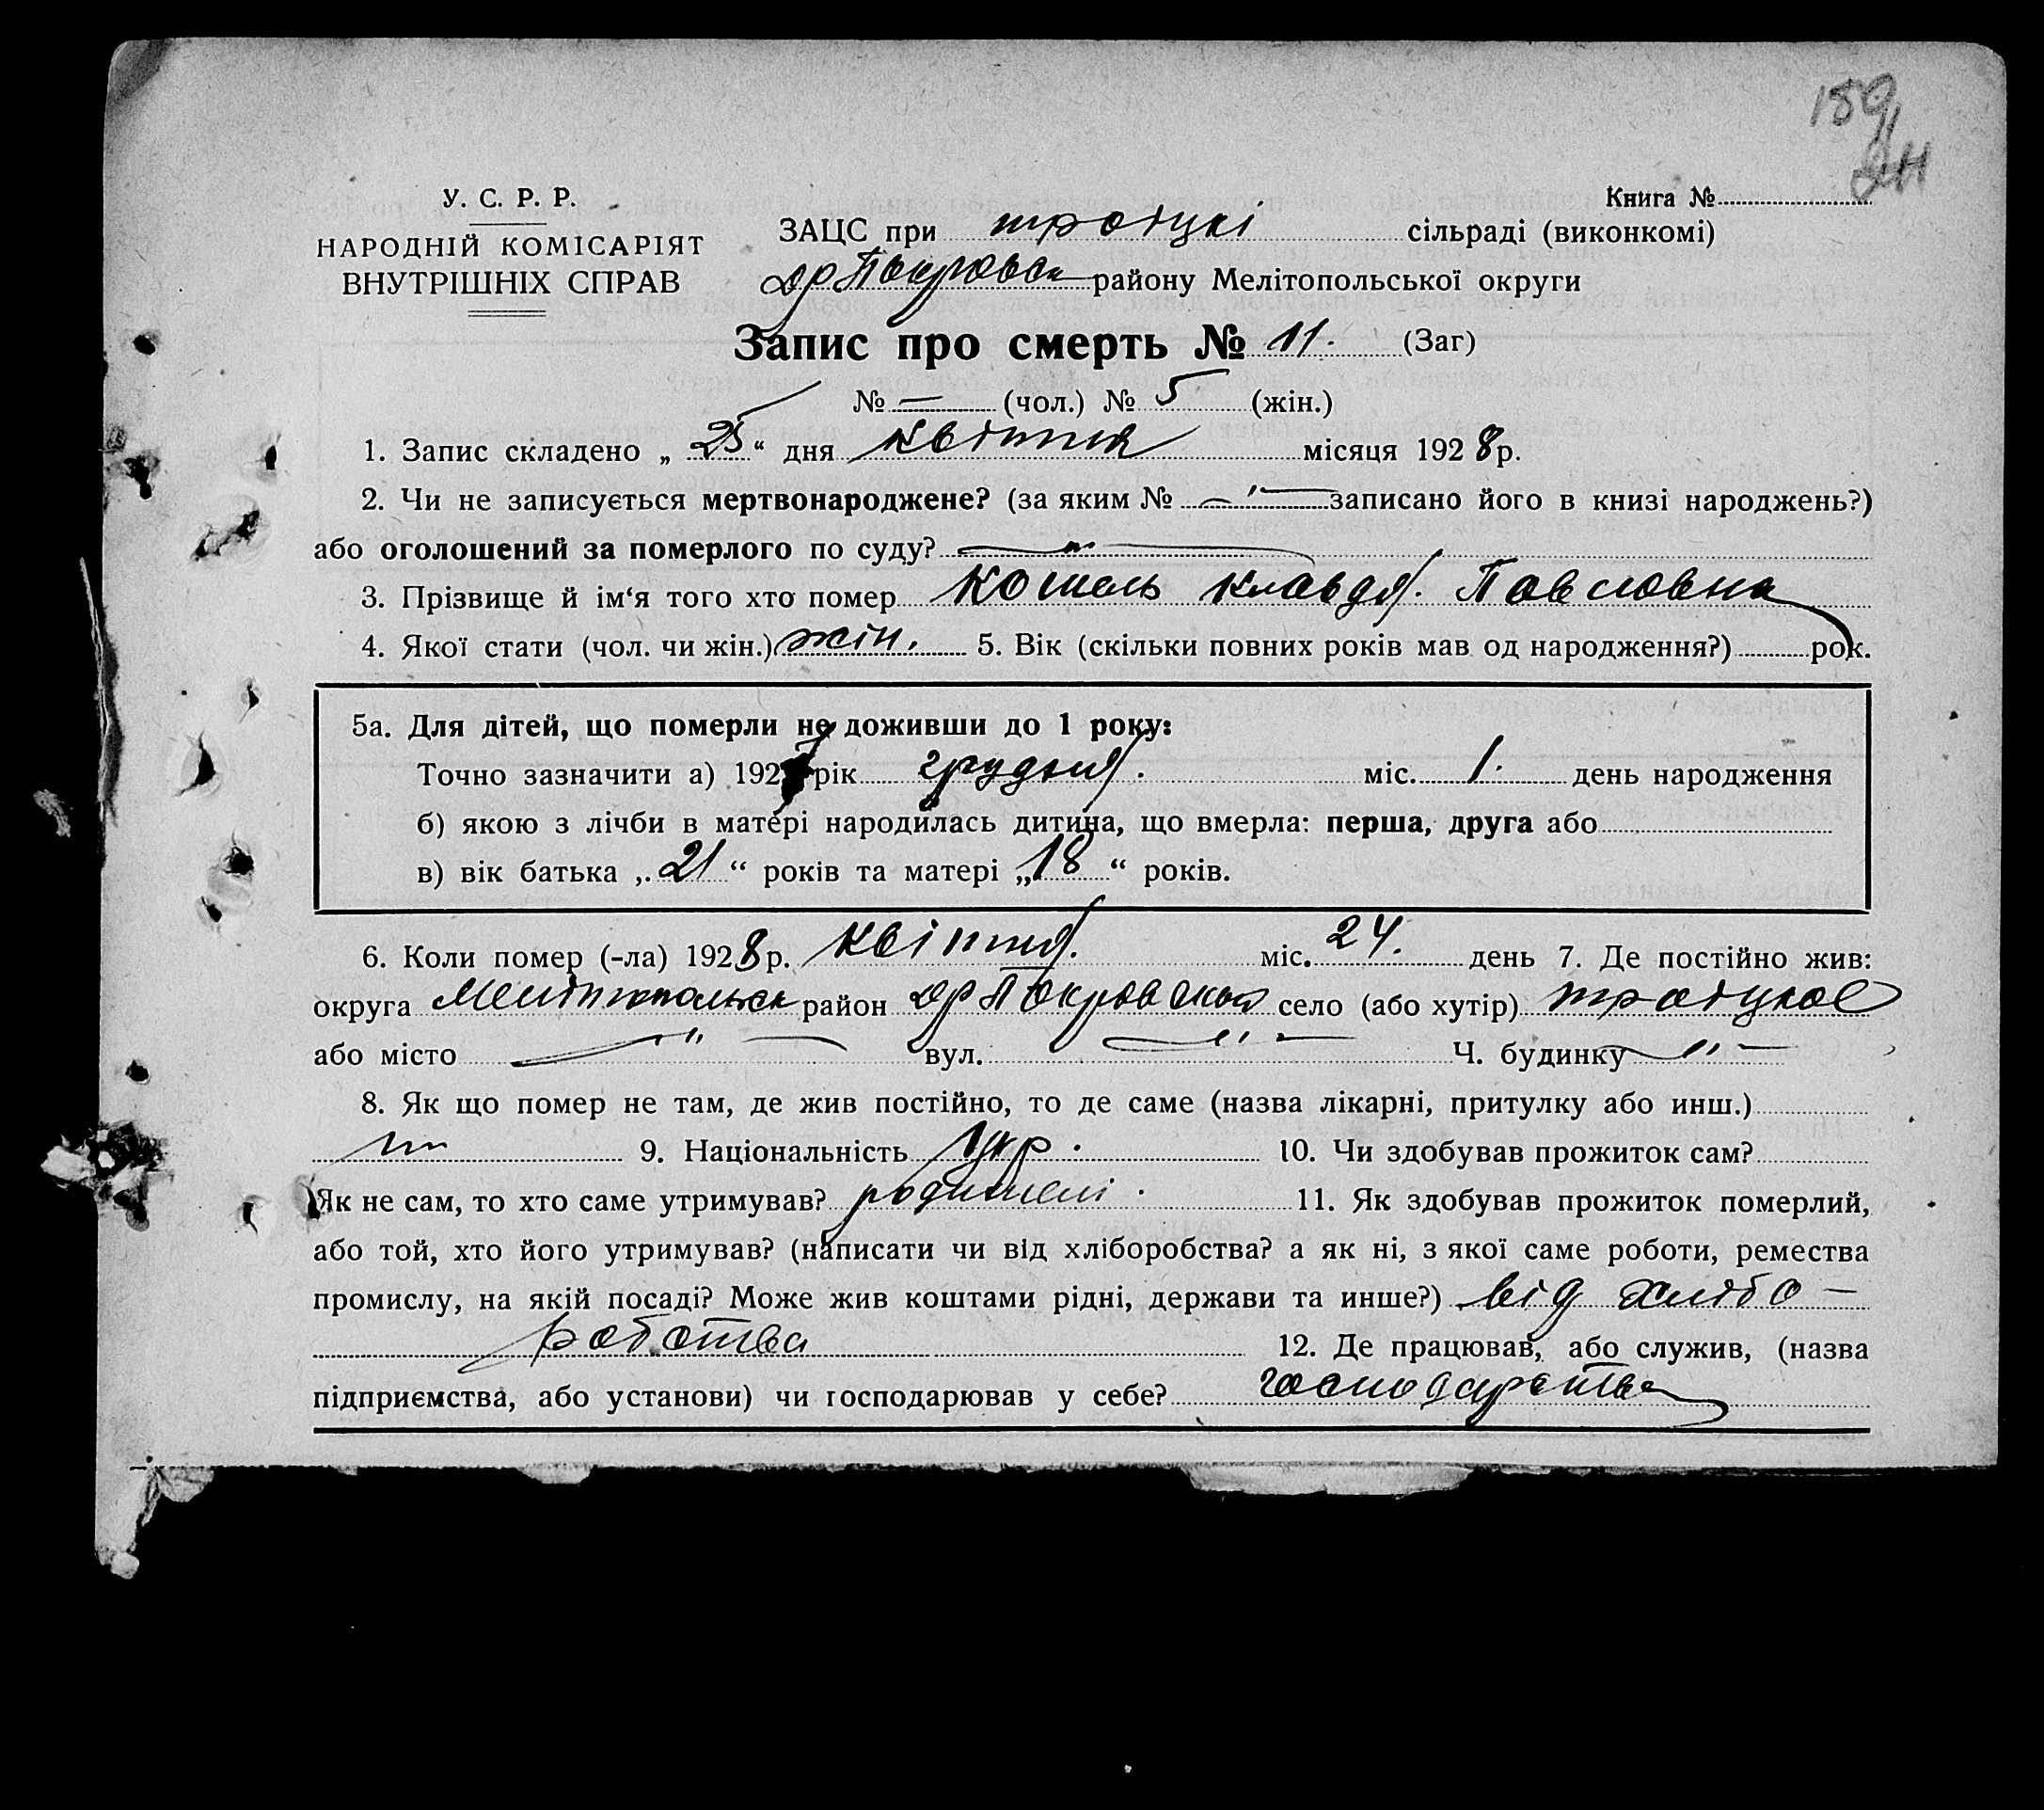 159
У. С. Р. Р.
НАРОДНІЙ КОМІСАРІЯТ
ВНУТРІШНІХ СПРАВ
Книга №
ЗАЦС при троіцкі сільраді (виконкомі)
др Покровск району Мелітопольської округи
Запис про смерть № 11. (Заг)
№ — (чол.) № 5 (жін.)
1. Запис складено „ 25 “ дня квітня місяця 1928 р.
2. Чи не записується мертвонароджене? (за яким № — „ — записано його в книзі народжень?)
або оголошений за померлого по суду? — „ —
3. Прізвище й ім‘я того хто помер Кошель Клавдя. Павловна
4. Якої стати (чол. чи жін.) жін. 5. Вік (скільки повних років мав од народження?) рок.
5а. Для дітей, що померли не доживши до 1 року:
Точно зазначити а) 1927 рік грудня. міс. 1. день народження
б) якою з лічби в матері народилась дитина, що вмерла: перша, друга або
в) вік батька „ 21 “ років та матері „ 18 “ років.
6. Коли помер (-ла) 1928 р. квітня. міс. 24. день 7. Де постійно жив:
округа Мелітопольск район др Покровский село (або хутір) троіцкое
або місто — „ — вул. — „ — Ч. будинку — „ —
8. Як що помер не там, де жив постійно, то де саме (назва лікарні, притулку або инш.)
9. Національність укр. 10. Чи здобував прожиток сам?
Як не сам, то хто саме утримував? родителі. 11. Як здобував прожиток померлий,
або той, хто його утримував? (написати чи від хліборобства? а як ні, з якої саме роботи, ремества
промислу, на якій посаді? Може жив коштами рідні, держави та инше?) від хлібо—
робства 12. Де працював, або служив, (назва
підприємства, або установи) чи господарював у себе? господарства